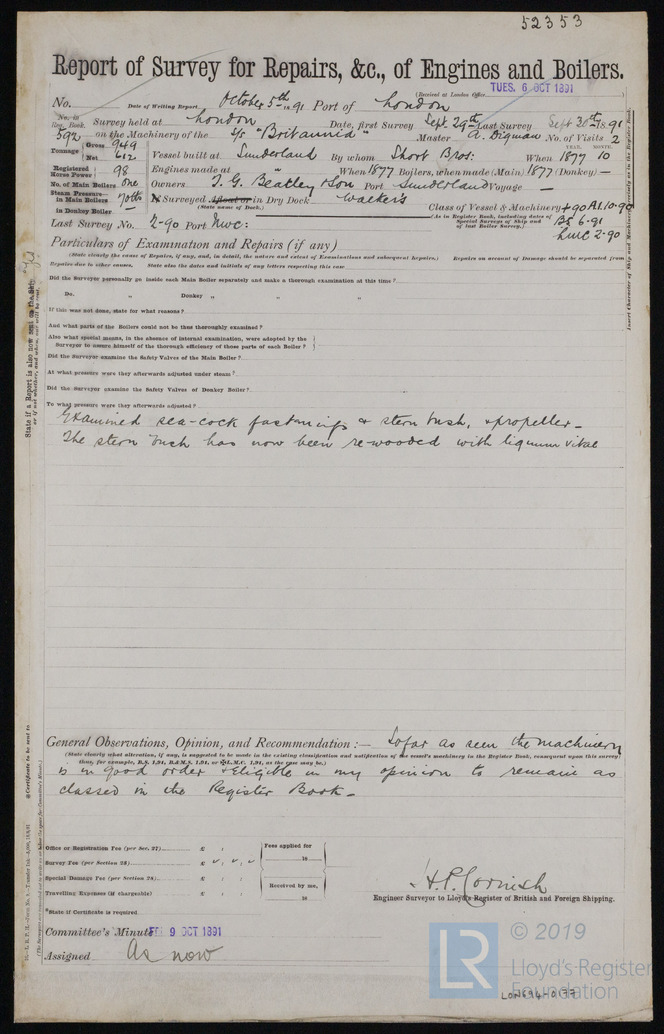 52353
Report of Survey for Repairs, &c., of Engines and Boilers.
(Received at London Office TUES. 6 OCT 1891
No. Date of Writing Report October 5th 1891 Port of London
No. in Reg. Book. Survey held at London Date, first Survey Sept. 29th Last Survey Sept 30th 1891
592 on the Machinery of the S/S "Britannia" Master A. Digman No. of Visits 2
Tonnage Gross 949 Net 612 Vessel built at Sunderland By whom Short Bros: When 1877 10
YEAR. MONTH.
Registered Horse Power 98 Engines made at When 1877 Boilers, when made (Main) 1877 (Donkey) —
No. of Main Boilers One Owners T. G. Beatley & Son Port Sunderland Voyage —
Steam Pressure in Main Boilers 70lbs If Surveyed Afloat or in Dry Dock Walkers Class of Vessel & Machinery +90 A1.10.90
(State name of Dock.) (As in Register Book, including dates of Special Surveys of Ship and of last Boiler Survey.)
in Donkey Boiler — BS 6.91
Last Survey No. 2-90 Port Nwc: LMC 2.90
Particulars of Examination and Repairs (if any)
(State clearly the cause of Repairs, if any, and, in detail, the nature and extent of Examinations and subsequent Repairs.) Repairs on account of Damage should be separated from
Repairs due to other causes. State also the dates and initials of any letters respecting this case
Did the Surveyor personally go inside each Main Boiler separately and make a thorough examination at this time?
Do. " Donkey " " "
If this was not done, state for what reasons?
And what parts of the Boilers could not be thus thoroughly examined?
Also what special means, in the absence of internal examination, were adopted by the
Surveyor to assure himself of the thorough efficiency of those parts of each Boiler?
Did the Surveyor examine the Safety Valves of the Main Boiler?
At what pressure were they afterwards adjusted under steam?
Did the Surveyor examine the Safety Valves of Donkey Boiler?
To what pressure were they afterwards adjusted?
Examined sea-cock fastenings & stern bush, & propeller –
The stern bush has now been re-wooded with lignum vitae
General Observations, Opinion, and Recommendation:— So far as seen the machinery
(State clearly what alteration, if any, is suggested to be made in the existing classification and notification of the vessel's machinery in the Register Book, consequent upon this survey;
thus, for example, B.S. 1,91, B.&M.S. 1,91, or ✠L.M.C. 1,91, as the case may be.)
is in good order & eligible in my opinion to remain as
classed in the Register Book –
Office or Registration Fee (per Sec. 27) £ : :
Survey Fee (per Section 28) £ : :
Special Damage Fee (per Section 28) £ : :
Travelling Expenses (if chargeable) £ : :
Fees applied for
18
Received by me,
18
*State if Certificate is required
H.P. Cornish
Engineer Surveyor to Lloyd's Register of British and Foreign Shipping.
Committee's Minute FRI 9 OCT 1891
Assigned As now
LR © 2019
Lloyd's Register
Foundation
LON694-0177
State if a Report is also now sent on the Ship
or if not whether, and when, one will be sent.